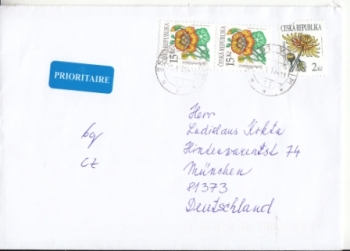 ČESKÁ REPUBLIKA
15 Kč
ČESKÁ REPUBLIKA
15 Kč
ČESKÁ REPUBLIKA
2 Kč
PRIORITAIRE
bg
CZ
Herrn
Ladislaus Kokta
74
München
81373
Deutschland